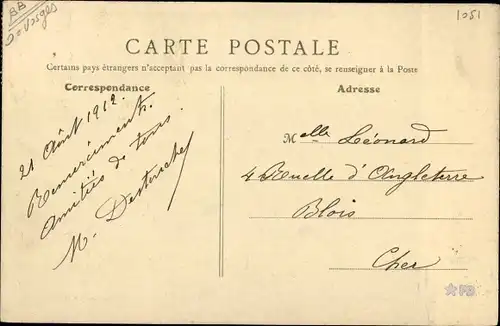 88
Dp Vosges
1051
CARTE POSTALE
Certains pays étrangers n'acceptant pas la correspondance de ce côté, se renseigner à la Poste
Correspondance
Adresse
21 Août 1912.
Remerciments.
Amitiés de tous.
M. Destouches
Melle Léonard
4 Ruelle d'Angleterre
Blois
Cher
PB